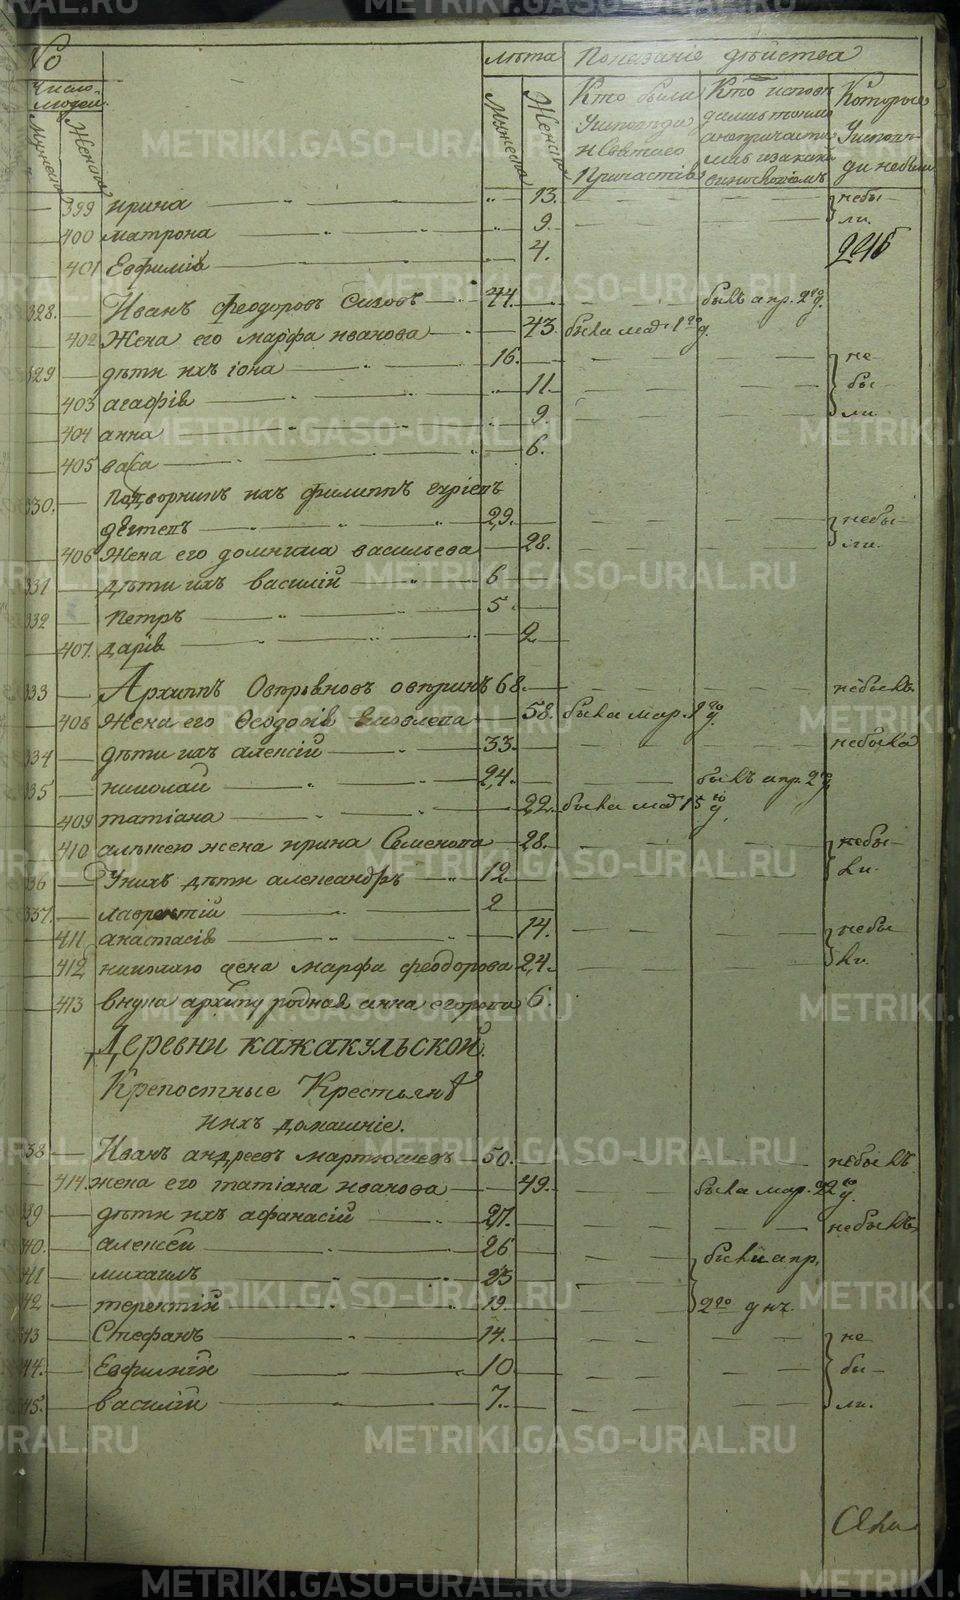 №
Число людей
Мужеска Женска
лѣта
Мужеска Женска
Показаніе дѣйства
Кто были у исповѣди и Святаго Причастія
Кто исповѣдались токмо а непричастились
Которые у исповѣди небыли
399 ирина 13. небы-
400 матрона 9. ли.
401 Евфимія 4.
328. Иванъ Феодоровъ Сизовъ 44 былъ апр. 2го д.
402 Жена его марфа иванова 43. была мар. 1го д.
329 дѣти ихъ іона 16. не
403 агафія 11. бы
404 анна 9. ли.
405 васса 6.
330. Подворникъ ихъ филиппъ
29. небы-
406 Жена его домникіа васильева 28. ли.
331 дѣти ихъ василій 6
332 петръ 5.
407. дарія 2
333 Архиппъ 68. небылъ.
408 Жена его Феодосія 58. была мар. 1го д.
334 дѣти ихъ алексій 33. небыла
335 николай 24. былъ апр. 2го д.
409 татіана 22. была мар 15го д.
410 алексею жена ирина Семенова 28. небы-
336 У нихъ дѣти александръ 12. ли.
337. лаврентій 2
411 анастасія 14. небы
412 николаю жена марфа феодорова 24. ли.
413 внука архипу родная анна егорова 6.
Деревни кажакульской
Крепостные Крестьянѣ
ихъ домашніе.
338 Иванъ андреевъ мартюшевъ 50. небылъ
414. жена его татіана иванова 49. была мар. 22го д.
339 дѣти ихъ афанасій 27. небылъ
340. алексѣй 26 были апр.
341 михаилъ 23
342 терентій 19. 2го дн.
343 Стефанъ 14. не
344. Евфимій 10 бы-
345. василій 7. ли.
METRIKI.GASO-URAL.RU